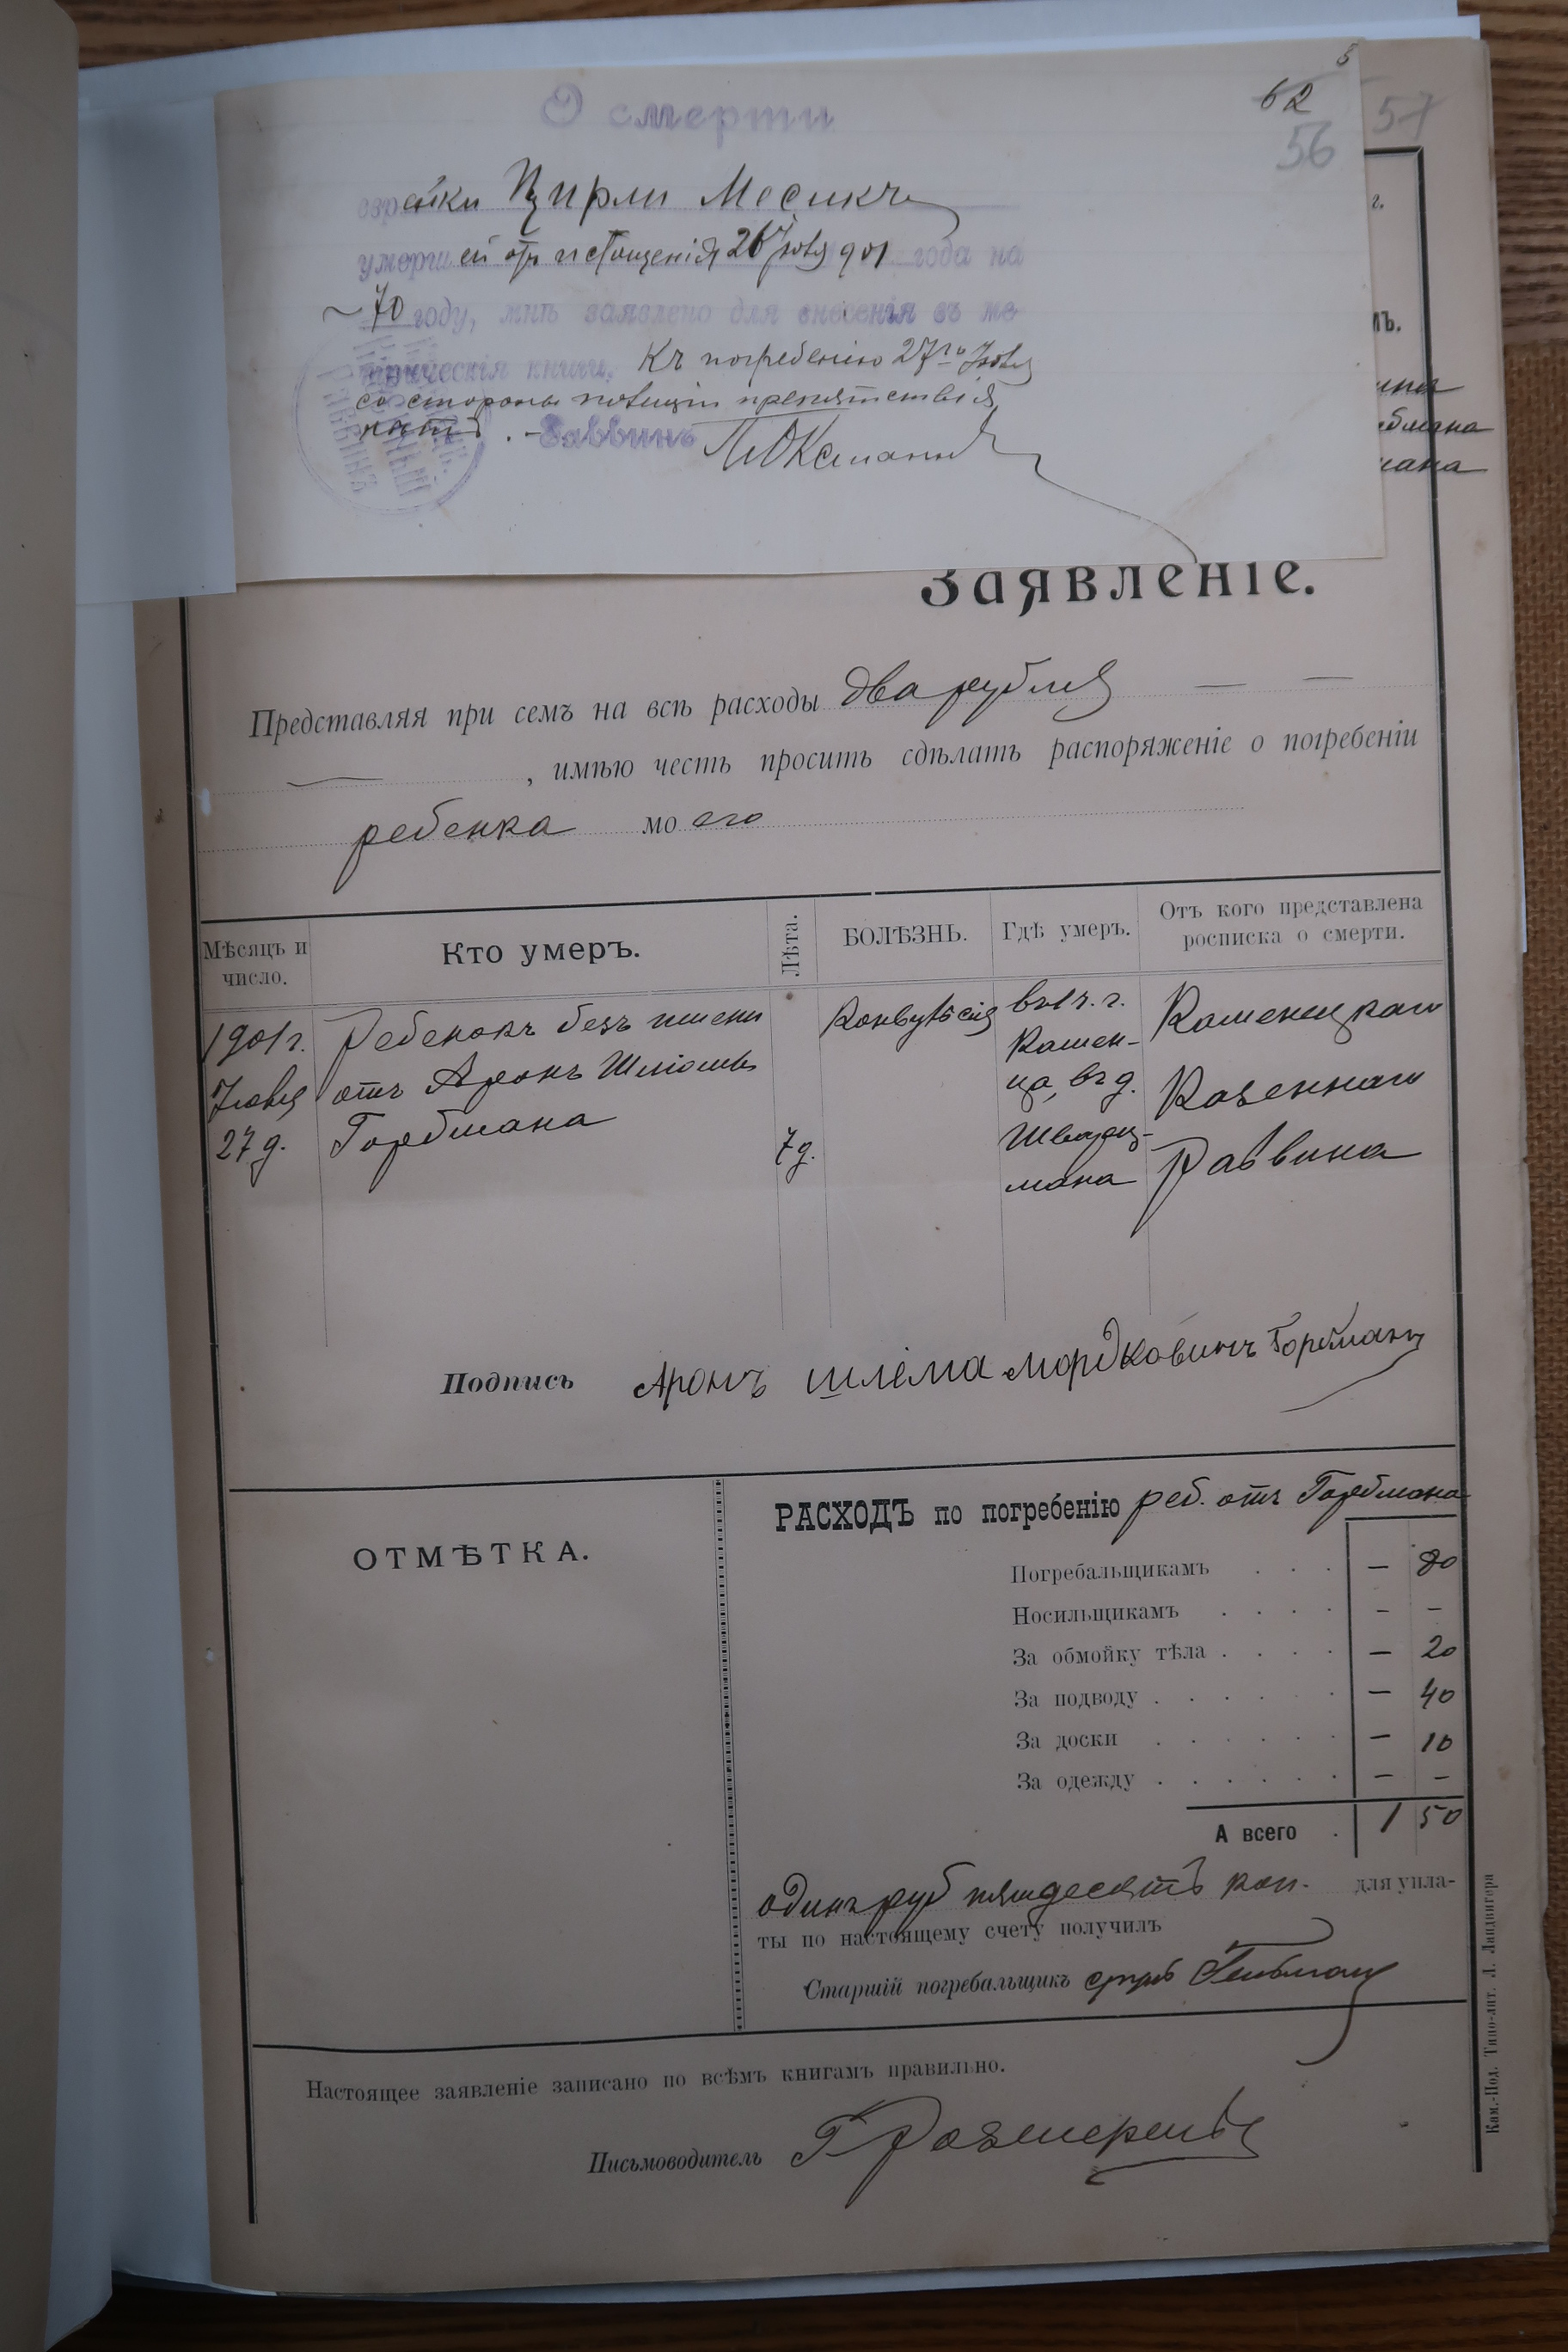 62
56
57
О смерти
еврейки Цирли Месикъ
умершей отъ истощенія 26 Іюля 901 года на
70 году, мнѣ заявлено для внесенія въ ме
трическія книги. Къ погребенію 27го Іюля
со стороны полиціи препятствія
нѣтъ. - Раввинъ
г.
мъ.
Заявленіе.
Представляя при семъ на всѣ расходы два рубля — —
— , имѣю честь просить сдѣлать распоряженіе о погребеніи
ребенка моего
Мѣсяцъ и число.
Кто умеръ.
Лѣта.
БОЛѢЗНЬ.
Гдѣ умеръ.
Отъ кого представлена росписка о смерти.
1901 г. Ребенокъ безъ имени Конвульсія въ 1 ч. г. Каменецкаго
Іюля отъ Аронъ Шліомы Камен-
ца, въ д. Казеннаго
27 д. Горбмана 7 д. Шварц-
мана Раввина
Подпись Аронъ шлёма мордковичъ Горбманъ
ОТМѢТКА.
РАСХОДЪ по погребенію реб. отъ Горбмана
Погребальщикамъ . . . — 80
Носильщикамъ . . . . – –
За обмойку тѣла . . . . — 20
За подводу . . . . . . — 40
За доски . . . . . . — 10
За одежду . . . . . . — –
А всего . 1 50
одинъ руб пятдесятъ коп. для упла-
ты по настоящему счету получилъ
Старшій погребальщикъ
Настоящее заявленіе записано по всѣмъ книгамъ правильно.
Письмоводитель
Кам.-Под. Типо-лит. Л. Ландвигера